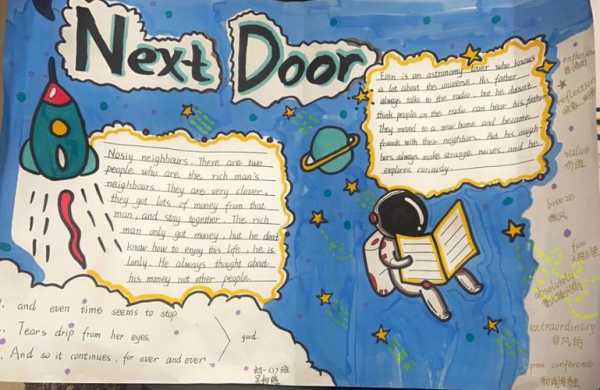 Next Door
Noisy neighbours. There are two
people who are the rich man's
neighbours. They are very closer,
they got lots of money from that
man, and stay together. The rich
man only got money, but he don't
know how to enjoy this life, he is
lonly. He always thought about
his money not other people.
Eilin is an astronomy lover who knows
a lot about the universe. His father
always talk to the radio, but he doesn't
think people on the radio can hear his father
They moved to a new home and became
friends with their neighbors. But his neigh-
bors always make strange noises, and he
explores curiously.
and even time seems to stop
Tears drip from her eyes.
And so it continues, for ever and ever
good.
reflection
value
价值
breeze
微风
fun
absolutely
extraordinary
非凡的
press conference